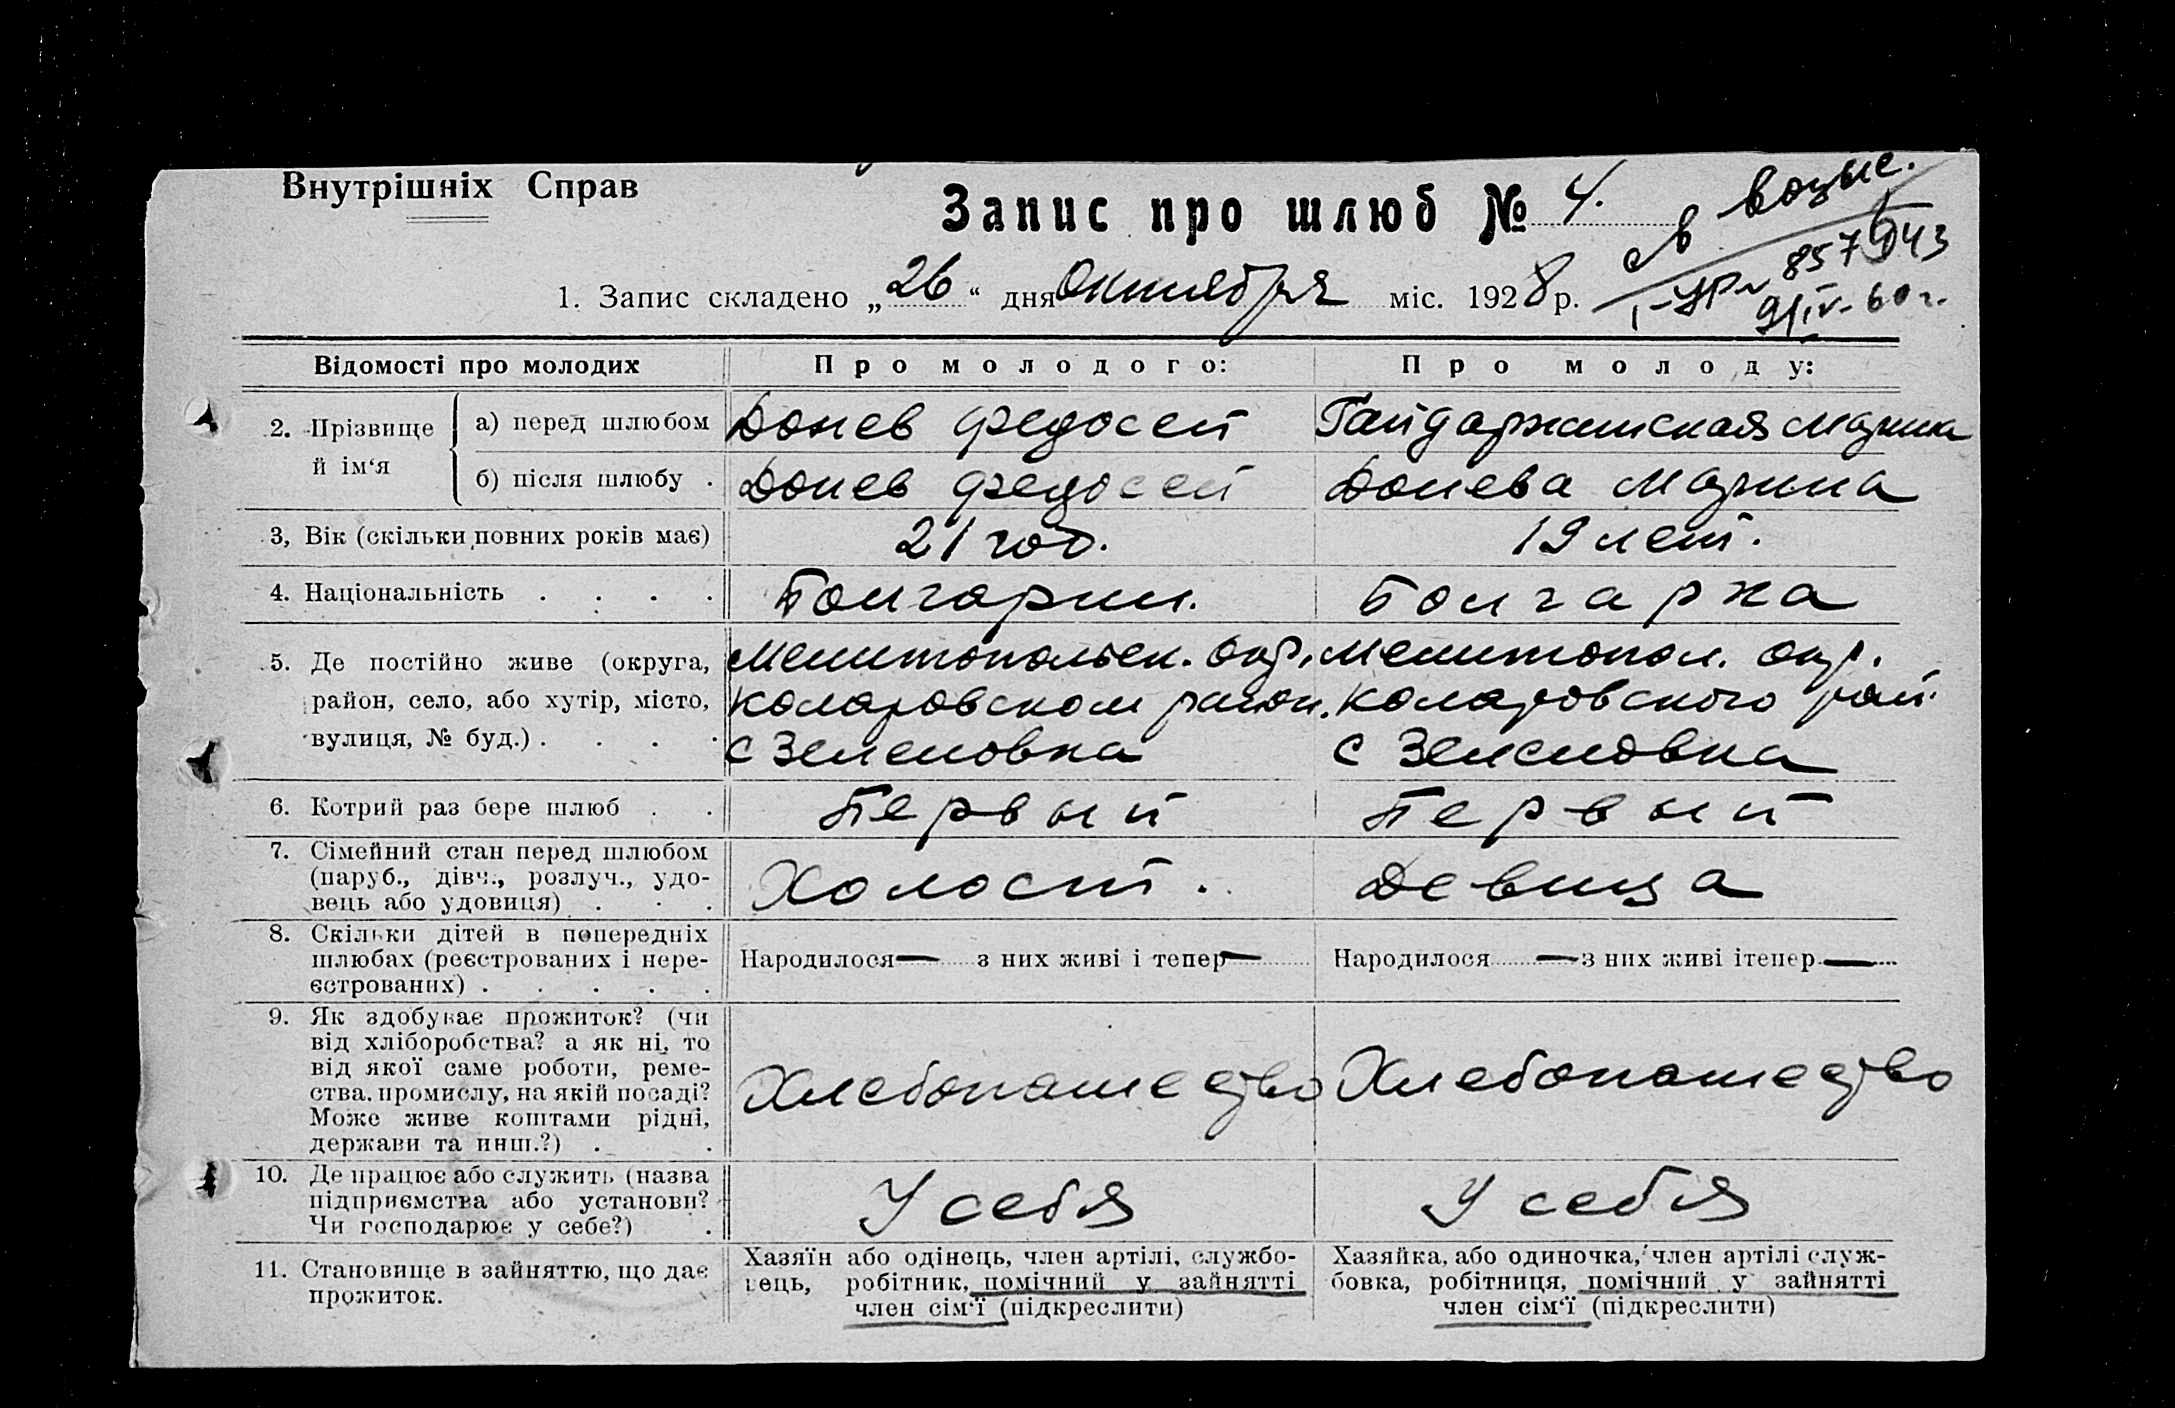 Внутрішніх Справ
Запис про шлюб № 4.
857043
9/IV-60 г.
1. Запис складено „26“ дня Октября міс. 1928 р.
Відомості про молодих Про молодого: Про молоду:
2. Прізвище й ім‘я
а) перед шлюбом Донев Федосей Гайдаржинская Марина
б) після шлюбу . Донев Федосей Донева Марина
3, Вік (скільки повних років має) 21 год. 19 лет.
4. Національність . . . . Болгарин. Болгарка
5. Де постійно живе (округа, Мелитопольск. окр. Мелитопол. окр.
район, село, або хутір, місто, Коларовском район. Коларовского рай.
вулиця, № буд.) . . . . с Зеленовка с Зеленовка
6. Котрий раз бере шлюб . . Первый Первый
7. Сімейний стан перед шлюбом
(паруб., дівч., розлуч., удо- Холост. Девица
вець або удовиця) . . .
8. Скільки дітей в попередніх
шлюбах (реєстрованих і нере- Народилося — з них живі і тепер — Народилося — з них живі ітепер —
єстрованих) . . . . .
9. Як здобуває прожиток? (чи
від хліборобства? а як ні, то
від якої саме роботи, реме-
ства, промислу, на якій посаді? Хлебопашество Хлебопашество
Може живе коштами рідні,
держави та инш.?) . .
10. Де працює або служить (назва
підприємства або установи? У себя У себя
Чи господарює у себе?) .
11. Становище в зайняттю, що дає
прожиток.
Хазяїн або одінець, член артілі, службо-
вець, робітник, помічний у зайнятті
член сім‘ї (підкреслити)
Хазяйка, або одиночка, член артілі служ-
бовка, робітниця, помічний у зайнятті
член сім‘ї (підкреслити)